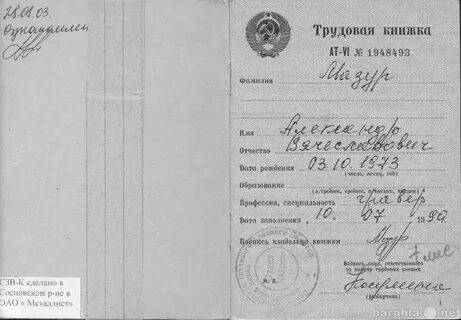 28.08.03.
Ознакомлен
СЗВ-К сделано в
Сосновском р-не в
ОАО « Металлист»
Трудовая книжка
AT-VI № 1948493
Фамилия Мазур
Имя Александр
Отчество Вячеславович
Дата рождения 03.10.1973
(число, месяц, год)
Образование
Профессия, специальность гравер
Дата заполнения 10. 07 1990
Подпись владельца книжки
Подпись лица, ответственного
за выдачу трудовых книжек
(разборчиво)
М. П.
1
barahla.net